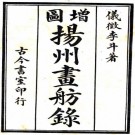 儀徵李斗著
增圖
揚州畫舫錄
古今書室印行